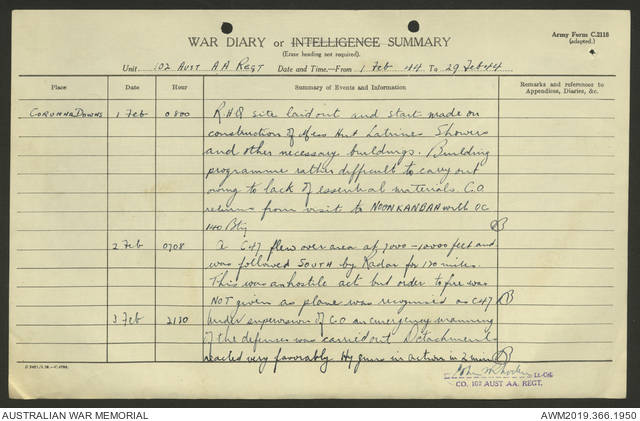 Army Form C.2118
(adapted.)
WAR DIARY or INTELLIGENCE SUMMARY
(Erase heading not required).
Unit 102 AUST A A REGT Date and Time—From 1 Feb 44 To 29 Feb 44
Place Date Hour Summary of Events and Information Remarks and references to
Appendices, Diaries, &c.
CORUNNA DOWNS 1 Feb 0800 RHQ site laid out and start made on
construction of Mess Hut Latrines Showers
and other necessary buildings. Building
programme rather difficult to carry out
owing to lack of essential materials. C.O
returns from visit to NOONKANBAH with OC
140 Bty
2 Feb 0708 A C47 flew over area at 7000 - 10000 feet and
was followed SOUTH by Radar for 120 miles.
This was a hostile act but order to fire was
NOT given as plane was recognised as C47
3 Feb 2130 Under supervision of CO an emergency manning
of the defences was carried out Detachments
reacted very favorably Hy guns in action in 2 mins
John Lt-Col
CO. 102 AUST AA. REGT.
AUSTRALIAN WAR MEMORIAL AWM2019.366.1950